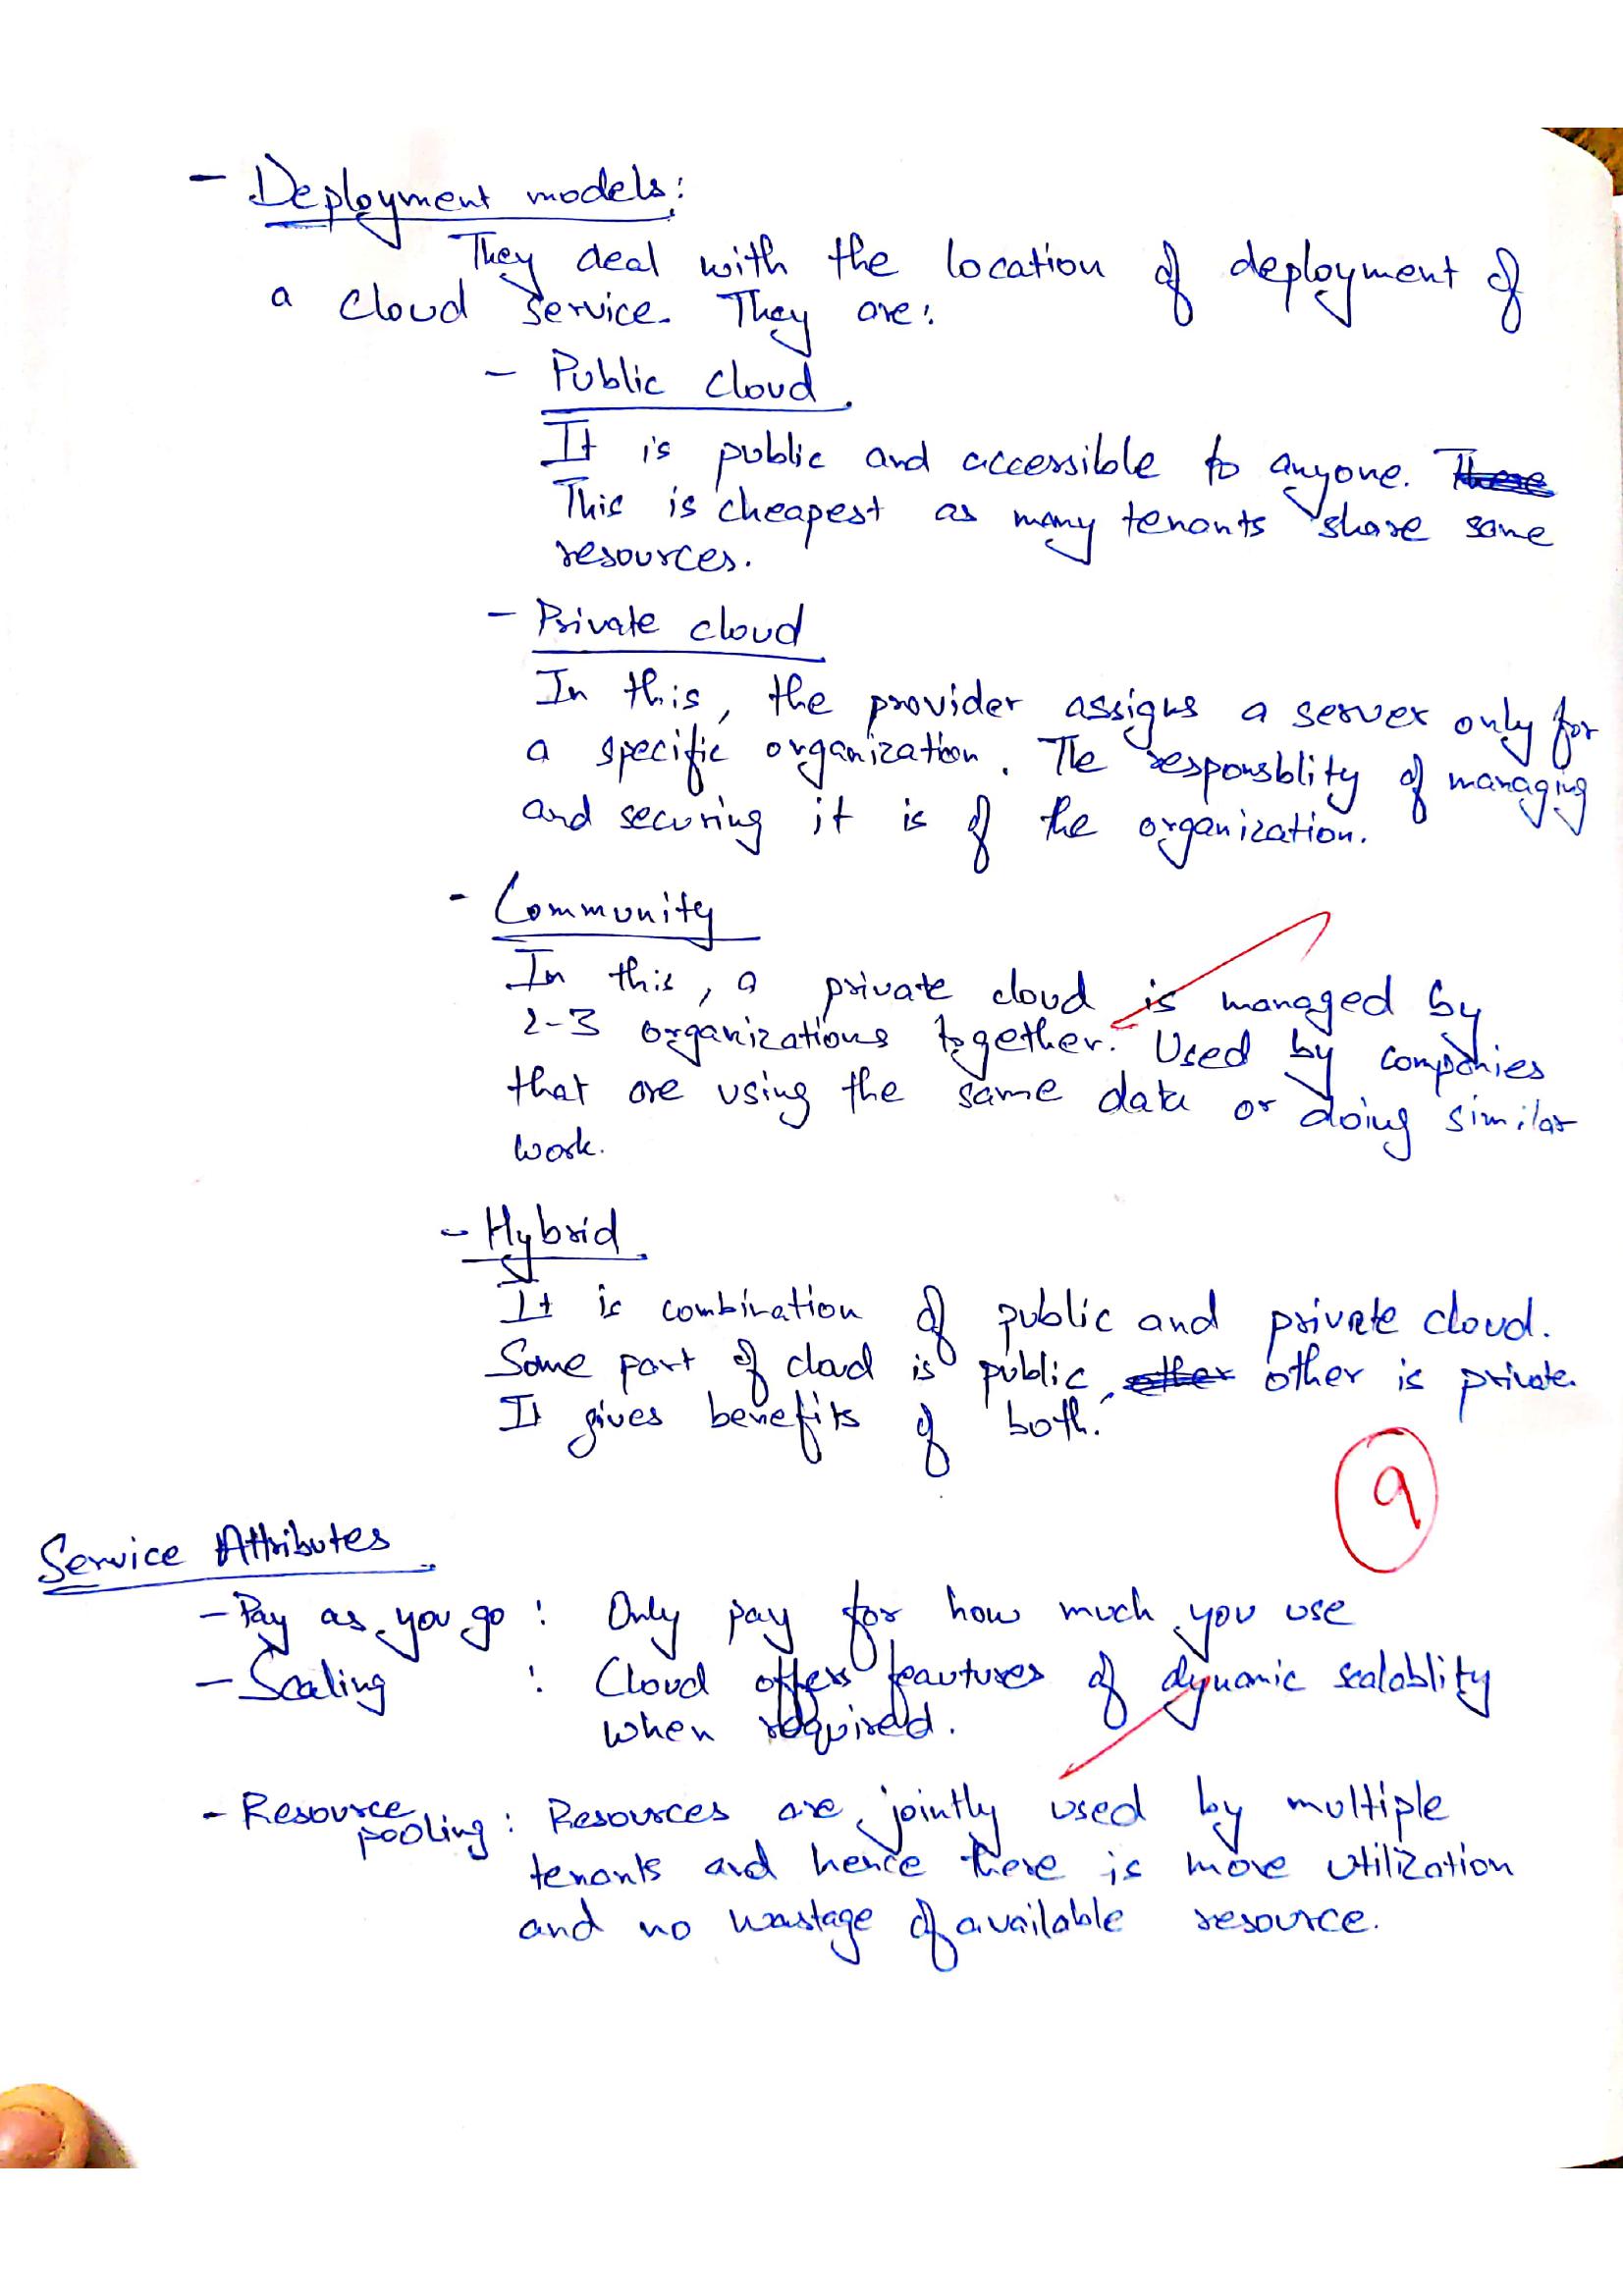 - Deployment models:
They deal with the location of deployment of
a cloud service. They are:
- Public cloud.
It is public and accessible to anyone.
This is cheapest as many tenants share same
resources.
- Private cloud
In this, the provider assigns a server only for
a specific organization. The responsblity of managing
and securing it is of the organization.
- Community
In this, a private cloud is managed by
2-3 organizations together. Used by companies
that are using the same data or doing similar
work.
- Hybrid.
It is combination of public and private cloud.
Some part of cloud is public, other is private.
It gives benefits of both.
9
Service Attributes
- Pay as you go : Only pay for how much you use
- Scaling : Cloud offers feautures of dynamic scalablity
when required.
- Resource pooling : Resources are jointly used by multiple
tenants and hence there is more utilization
and no wastage of available resource.